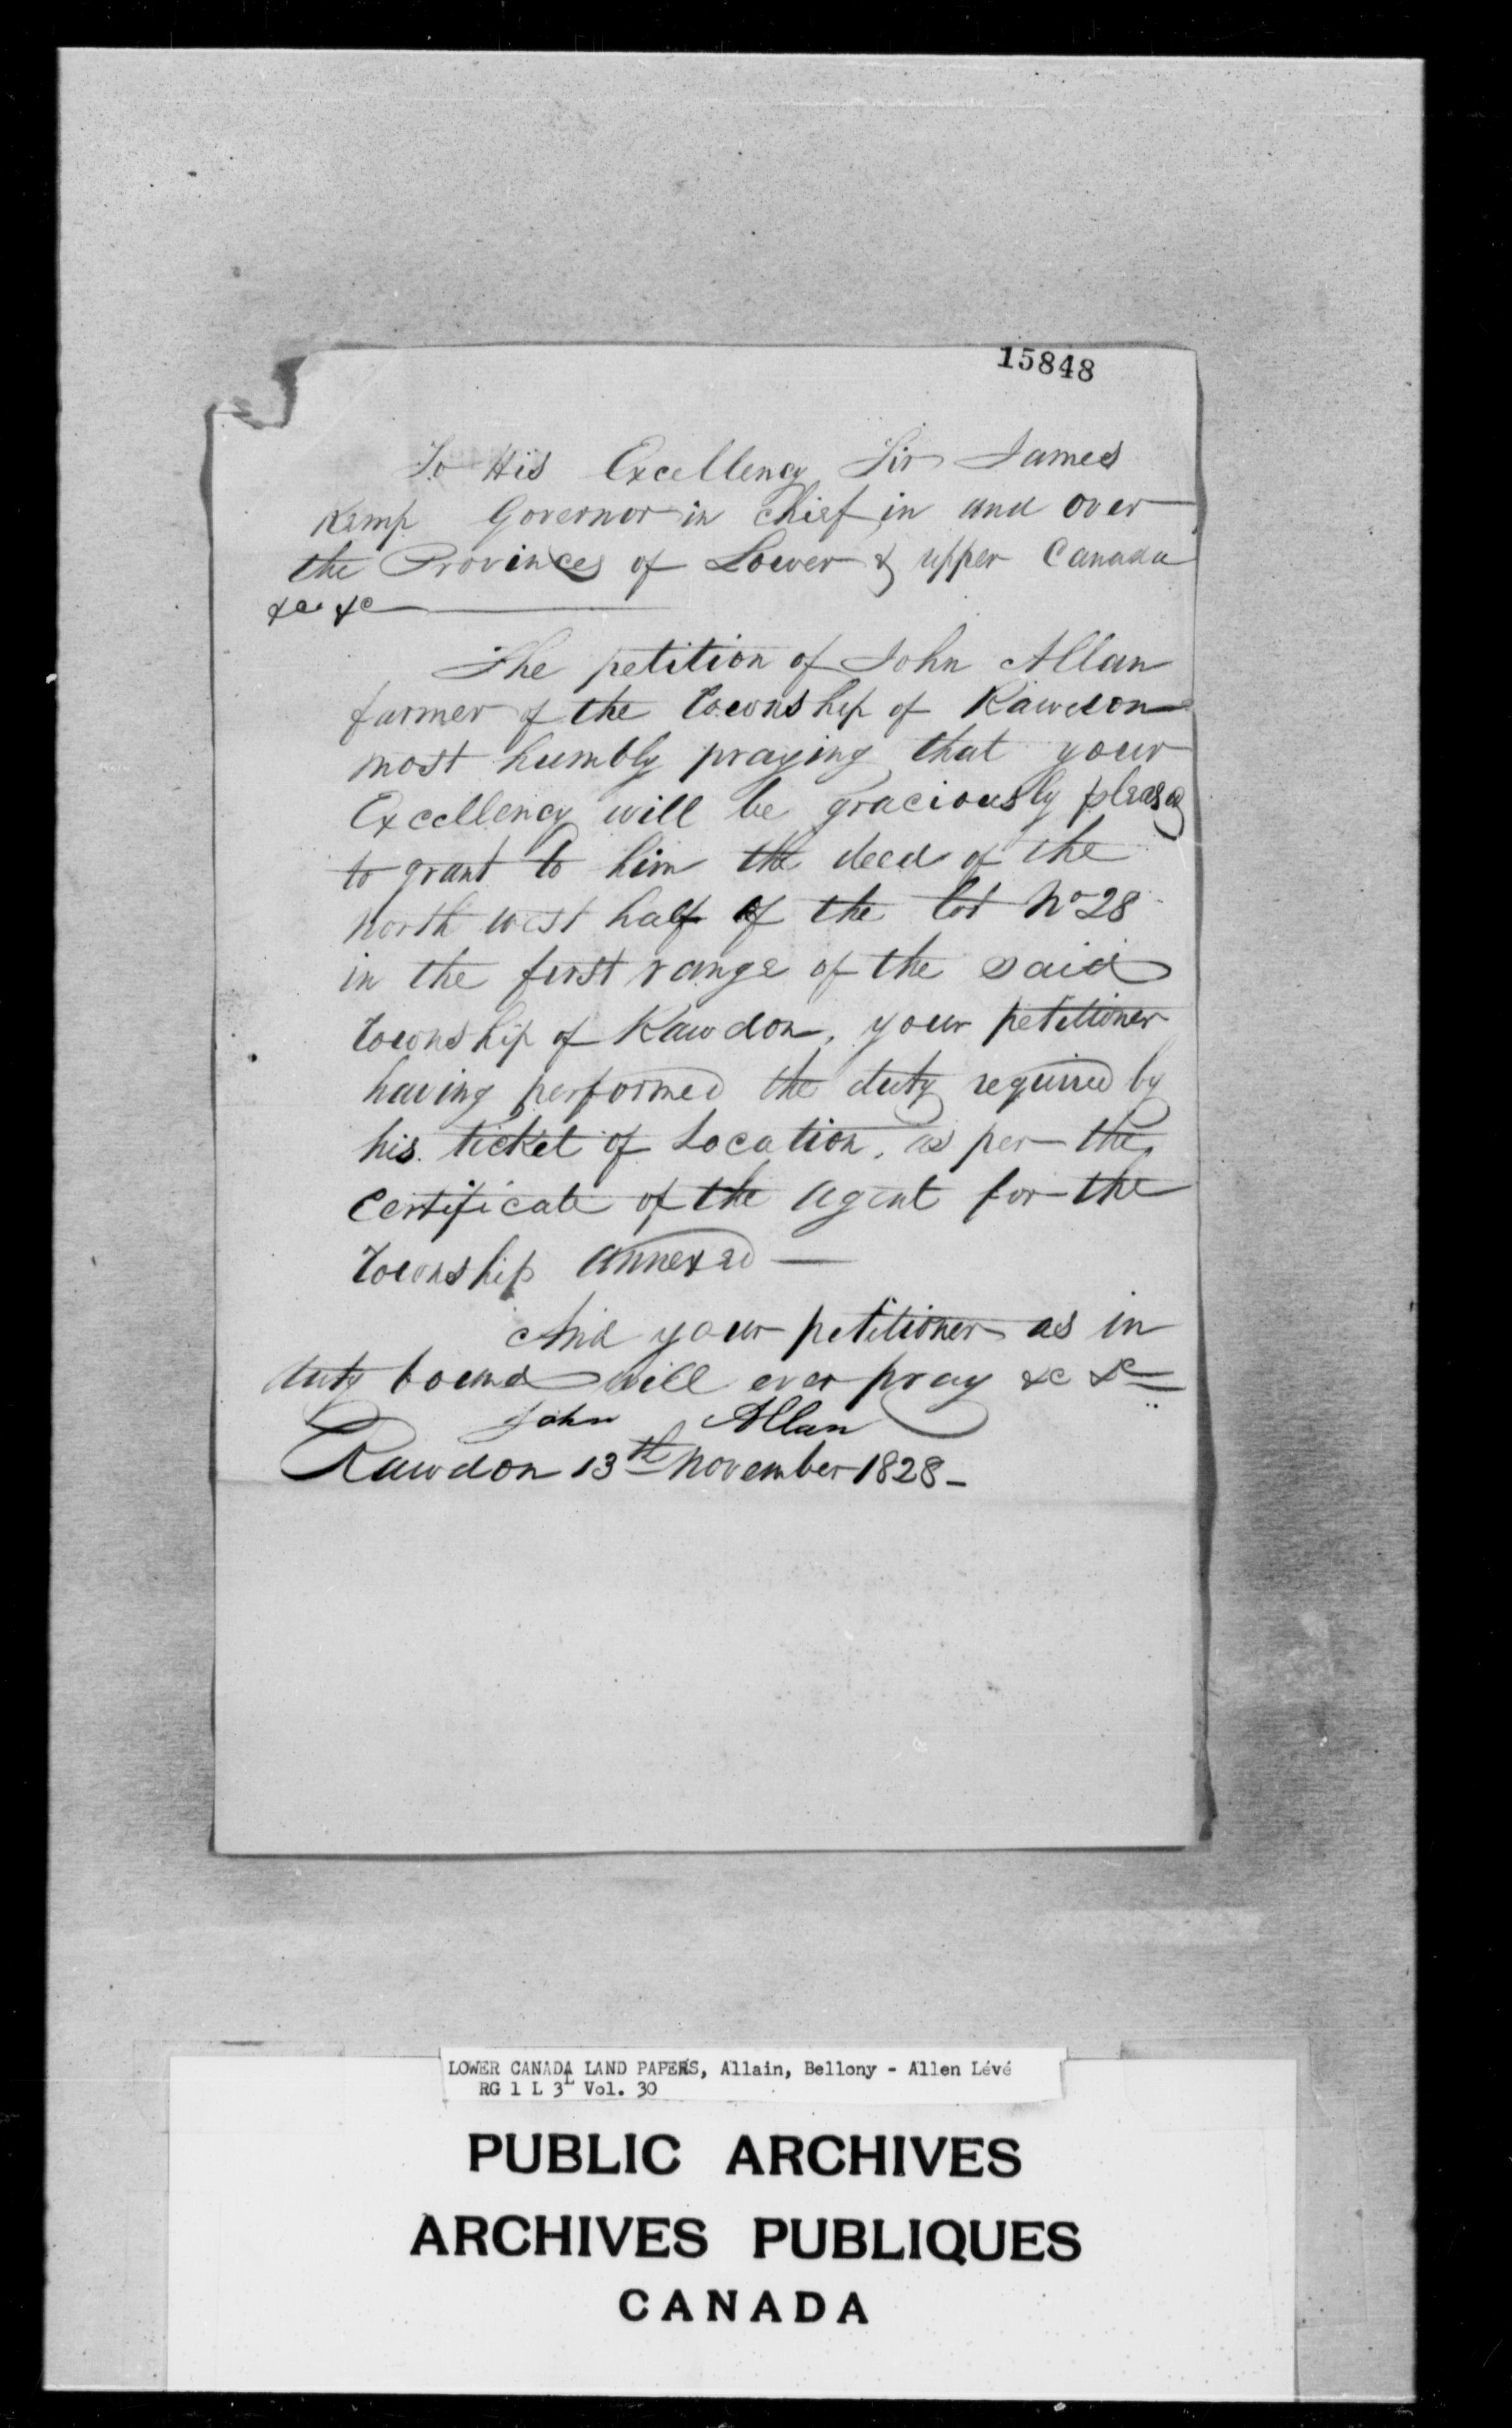 15848
To His Excellency Sir James
Kemp Governor in chief in and over
the Provinces of Lower & upper Canada
&c &c
The petition of John Allan
farmer of the township of Rawdon
most humbly praying that your
Excellency will be graciously pleased
to grant to him the deed of the
north west half of the lot No 28
in the first range of the said
township of Rawdon, your petitioner
having performed the duty required by
his ticket of Location, as per the
Certificate of the agent for the
township annexed —
And your petitioner as in
duty bound will ever pray &c &c
John Allan
Rawdon 13th November 1828 -
LOWER CANADA LAND PAPERS, Allain, Bellony - Allen Lévé
RG 1 L 3L Vol. 30
PUBLIC ARCHIVES
ARCHIVES PUBLIQUES
CANADA